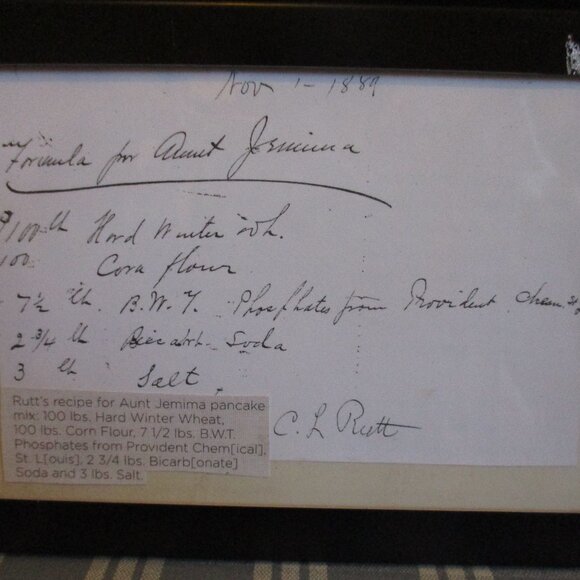 Nov 1 - 1889
Formula for Aunt Jemima
100 lb Hard Winter Wh.
100 Corn flour
7 1/2 lb. B.W.T. Phosphates from Provident Chem. St L
2 3/4 lb Bicarb. Soda
3 lb Salt
C. L Rutt
Rutt's recipe for Aunt Jemima pancake
mix: 100 lbs. Hard Winter Wheat,
100 lbs. Corn Flour, 7 1/2 lbs. B.W.T.
Phosphates from Provident Chem[ical],
St. L[ouis], 2 3/4 lbs. Bicarb[onate]
Soda and 3 lbs. Salt.